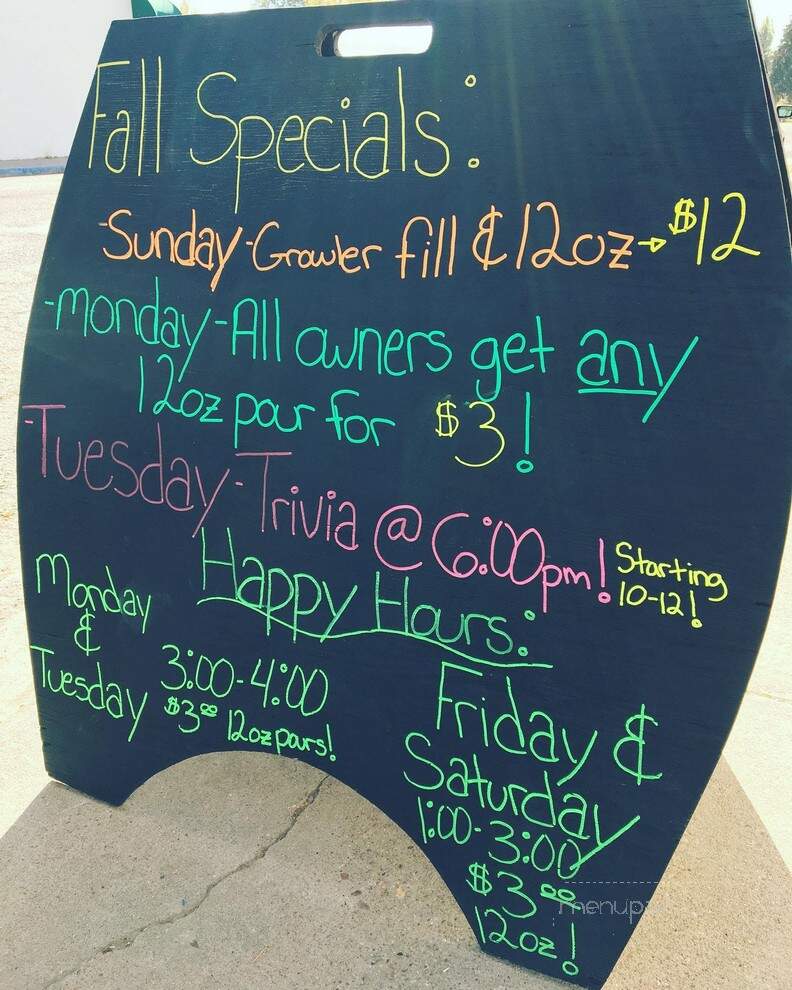 Fall Specials:
-Sunday-Growler fill & 12oz→$12
-Monday-All owners get any
12oz pour for $3!
-Tuesday-Trivia @ 6:00pm! Starting
10-12!
Happy Hours:
Monday
&
Tuesday
3:00-4:00
$3.00 12oz pours!
Friday &
Saturday
1:00-3:00
$3.00
12oz!